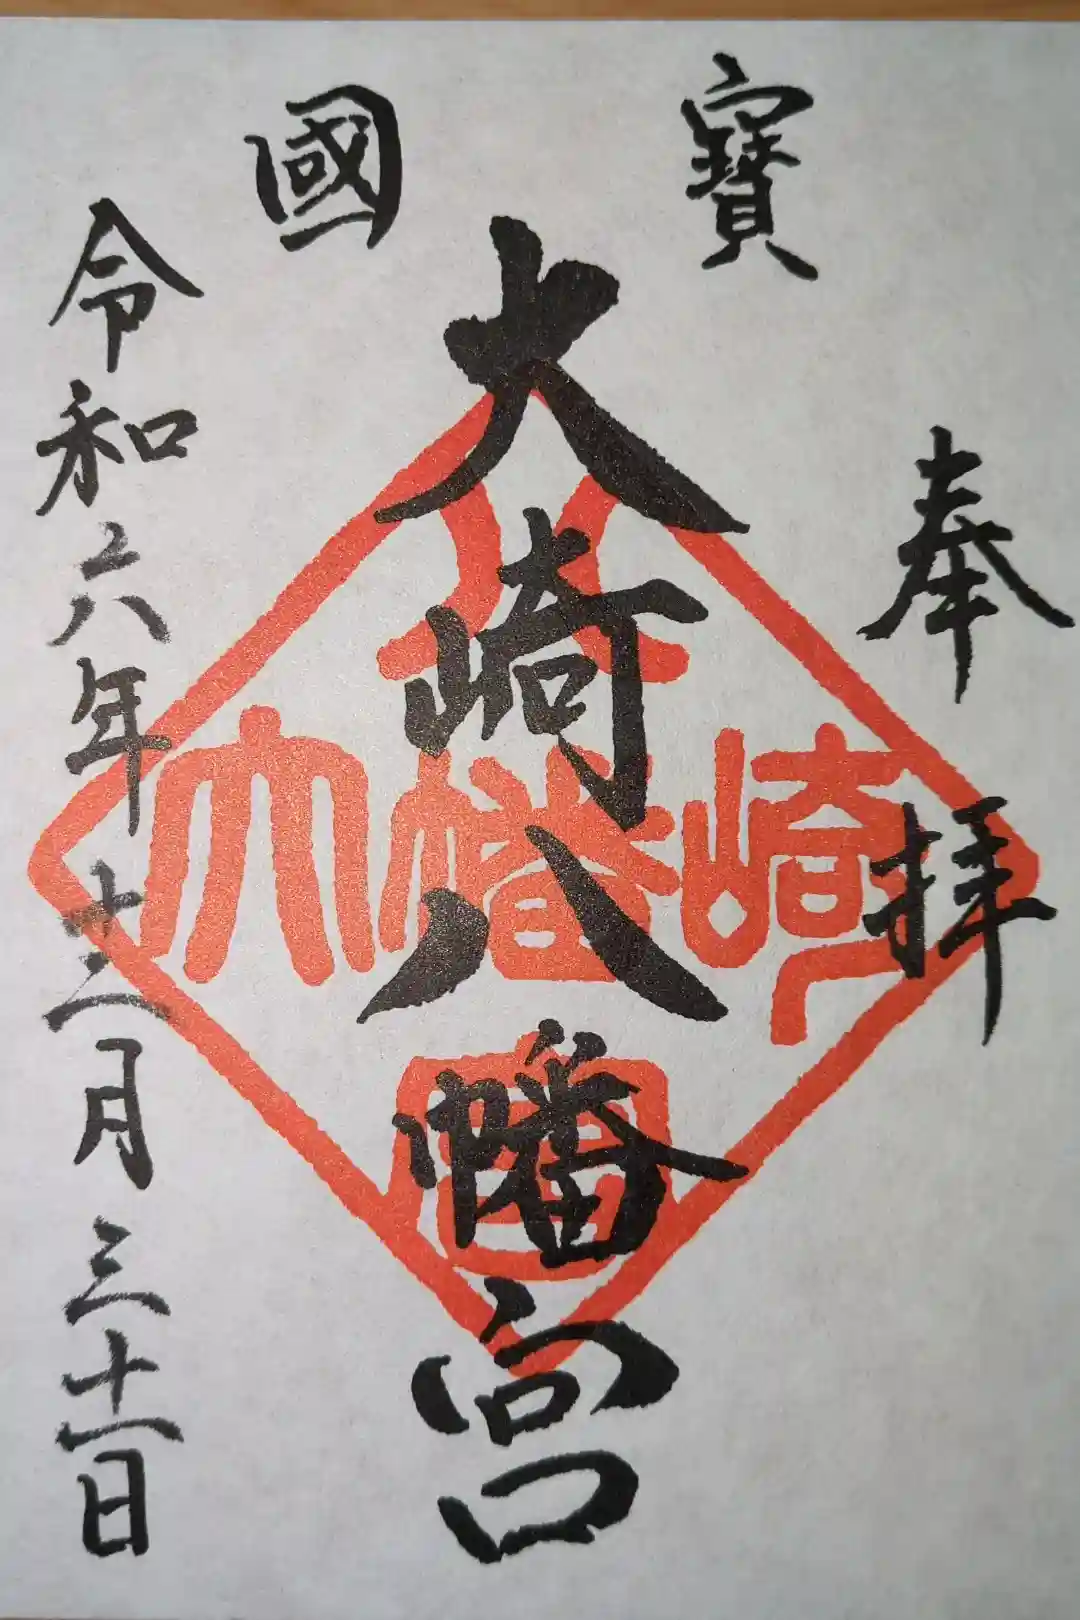 國寶
奉拝
大崎八幡宮
令和六年十二月三十一日
八
大幡崎
宮